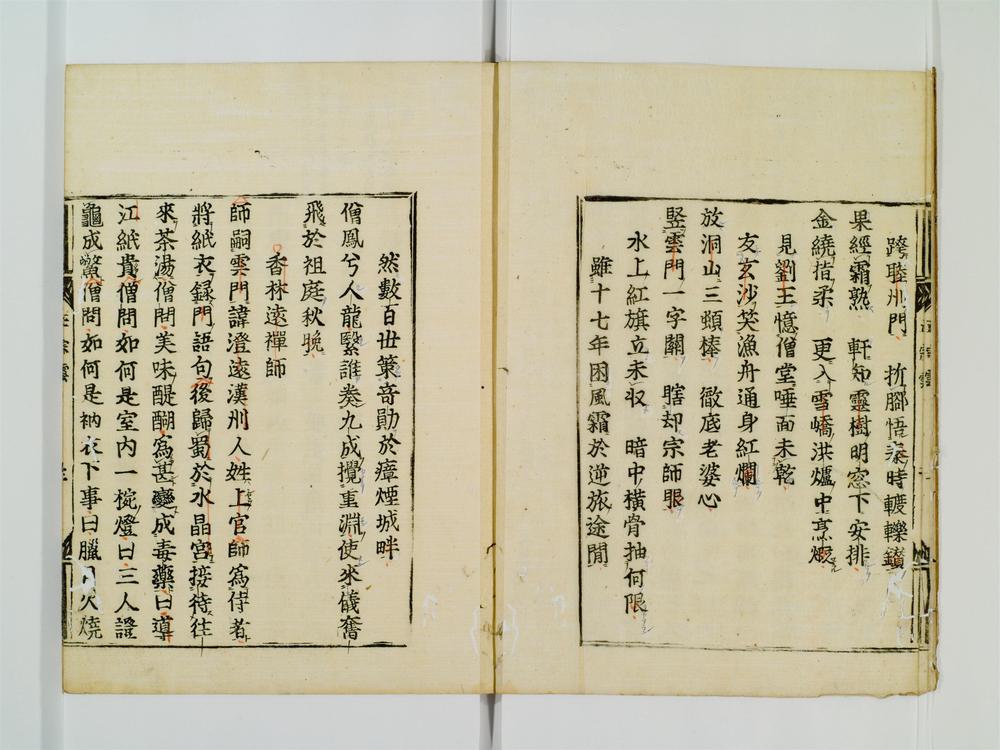 跨睦州門　折脚悟秦時轆轢鑽
果經霜熟　軒知靈樹明窓下安排
金繞指柔　更入雪嶠洪爐中烹煆
見劉王憶僧堂唾面未乾
友玄沙笑漁舟通身紅爛
放洞山三頓棒　徹底老婆心
竪雲門一字關　瞎却宗師眼
水上紅旗立未収　暗中横骨抽何限
雖十七年困風霜於逆旅途間
然數百世策奇勛於瘴煙城畔
僧鳳兮人龍繄誰奏九成攪重淵使來儀奮
飛於祖庭秋晚
香林遠禪師
師嗣雲門諱澄遠漢州人姓上官師爲侍者
將紙衣録門語句後歸蜀於水晶宮接待往
來茶湯僧問美味醍醐爲甚變成毒藥曰導
江紙貴僧問如何是室内一椀燈曰三人證
龜成鱉僧問如何是衲衣下事曰臘月火燒